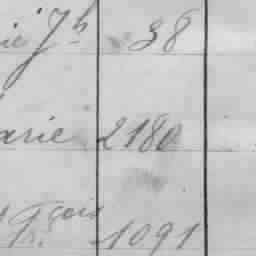 ie Jh 38
arie 2180
fçois 1091